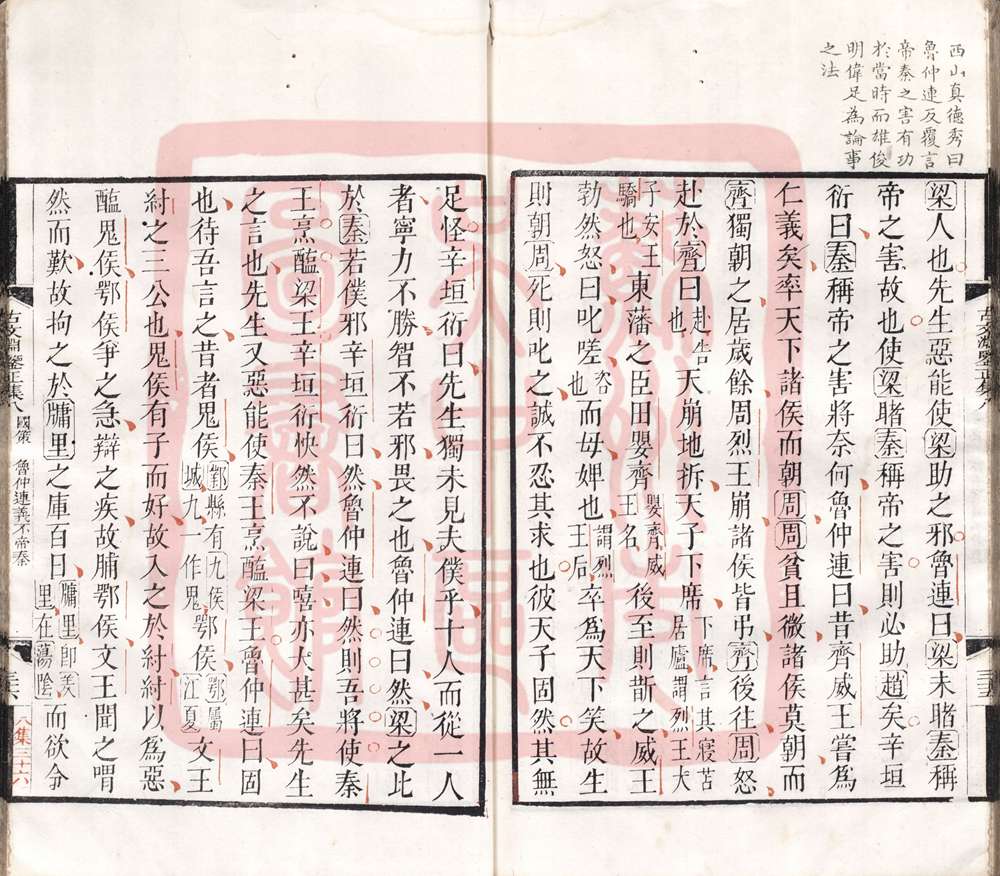 西山真德秀曰
魯仲連反覆言
帝秦之害有功
於當時而雄俊
明偉足為論事
之法
梁人也先生惡能使梁助之邪魯連曰梁未睹秦稱
帝之害故也使梁睹秦稱帝之害則必助趙矣辛垣
衍曰秦稱帝之害將奈何魯仲連曰昔齊威王嘗為
仁義矣率天下諸侯而朝周周貧且微諸侯莫朝而
齊獨朝之居歲餘周烈王崩諸侯皆弔齊後往周怒
赴於齊曰赴告也天崩地拆天子下席下席言其寢苫居廬謂烈王太
子安王驕也東藩之臣田嬰齊嬰齊威王名後至則斮之威王
勃然怒曰叱嗟咨也而母婢也謂烈王后卒為天下笑故生
則朝周死則叱之誠不忍其求也彼天子固然其無
足怪辛垣衍曰先生獨未見夫僕乎十人而從一人
者寧力不勝智不若邪畏之也魯仲連曰然梁之比
於秦若僕邪辛垣衍曰然魯仲連曰然則吾將使秦
王烹醢梁王辛垣衍怏然不說曰嘻亦太甚矣先生
之言也先生又惡能使秦王烹醢梁王魯仲連曰固
也待吾言之昔者鬼侯鄴縣有九侯城九一作鬼鄂侯鄂屬江夏文王
紂之三公也鬼侯有子而好故入之於紂紂以為惡
醢鬼侯鄂侯爭之急辯之疾故脯鄂侯文王聞之喟
然而歎故拘之於牖里之庫百日牖里即羑里在蕩陰而欲令
古文淵鑒正集八 國策 魯仲連義不帝秦
八集三十六